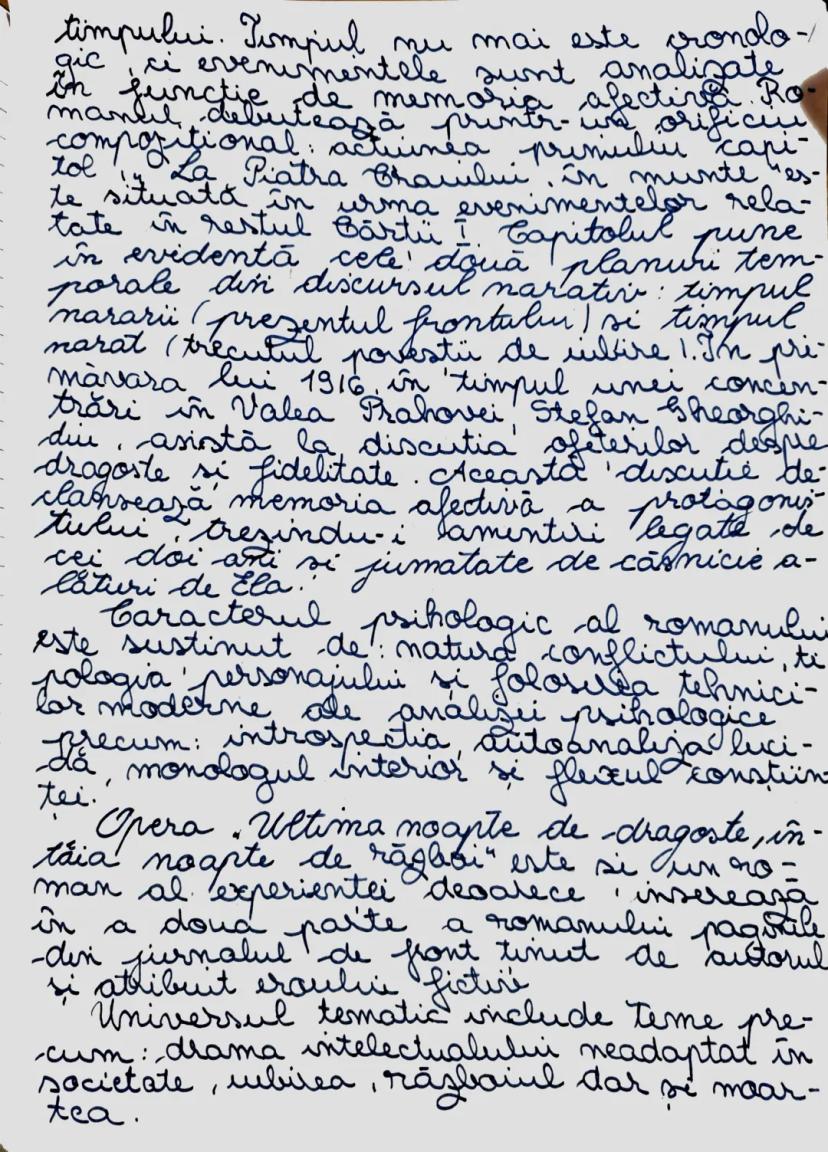 timpului. Timpul nu mai este cronolo-
gic, ci evenimentele sunt analizate
în funcție de memoria afectivă. Ro-
manul debutează printr-un orificiu
compozițional: acțiunea primului capi-
tol, „La Piatra Craiului, în munte" es-
te situată în urma evenimentelor rela-
tate în restul Cărții I. Capitolul pune
în evidență cele două planuri tem-
porale din discursul narativ: timpul
nararii (prezentul frontului) si timpul
narat (trecutul povestii de iubire). În pri-
măvara lui 1916, în timpul unei concen-
trări în Valea Prahovei, Stefan Gheorghi-
diu, asistă la discutia ofeterilor despre
dragoste și fidelitate. Această discutie de-
clansează memoria afectivă a protagonis-
tului, trezindu-i amintiri legate de
cei doi ani si jumatate de căsnicie a-
lături de Ela.
Caracterul psihologic al romanului
este sustinut de: natura conflictului, ti
pologia personajului și folosirea tehnici-
lor moderne ale analizei psihologice
precum: introspectia, autoanaliza luci-
dă, monologul interior și fluxul constiin
ței.
Opera „Ultima noapte de dragoste, în-
tâia noapte de război" este si un ro-
man al experientei deoarece inserează
în a doua parte a romanului paginile
din jurnalul de front tinut de autorul
și atribuit eroului fictiv
Universul tematic include teme pre-
cum: drama intelectualului neadaptat în
societate, iubirea, războiul dar și moar-
tea.